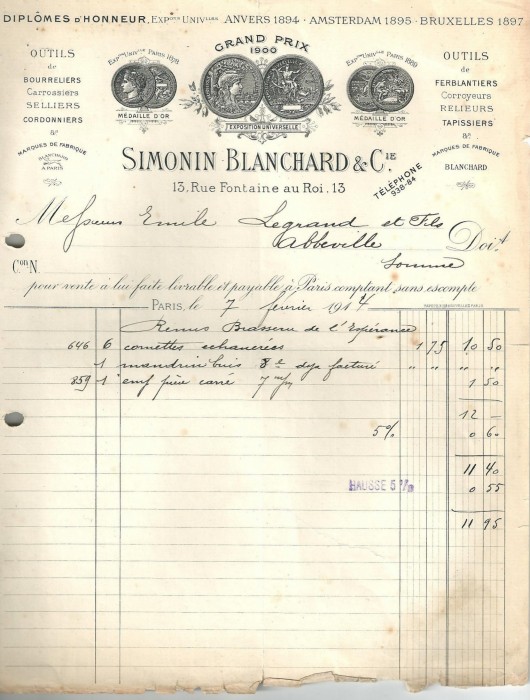 DIPLÔMES D'HONNEUR, EXPONS UNIVLLES ANVERS 1894 · AMSTERDAM 1895 · BRUXELLES 1897
GRAND PRIX
1900
EXPOSITION UNIVERSELLE
OUTILS
de
BOURRELIERS
Carrossiers
SELLIERS
CORDONNIERS
&c
MARQUES DE FABRIQUE
BLANCHARD
A PARIS
EXPON UNIVLLE PARIS 1878
MÉDAILLE D'OR
EXPON UNIVLLE PARIS 1900
MÉDAILLE D'OR
OUTILS
de
FERBLANTIERS
Corroyeurs
RELIEURS
TAPISSIERS
&c
MARQUES DE FABRIQUE
BLANCHARD
SIMONIN-BLANCHARD & CIE.
13, Rue Fontaine au Roi, 13
TÉLÉPHONE
938-84
Messieurs Emile Legrand et Fils
Abbeville Doit
Somme
Con N.
pour vente à lui faite livrable et payable à Paris comptant sans escompte
Paris, le 7 février 1914
Remis Brasserie de l'Espérance
646 6 cornettes echancrées 1 75 10 50
1 mandrin buis 8e deja facturé " " " "
859 1 emp pièce carré 7 m/m 1 50
12 —
5% 0 60
11 40
HAUSSE 5 % 0 55
11 95